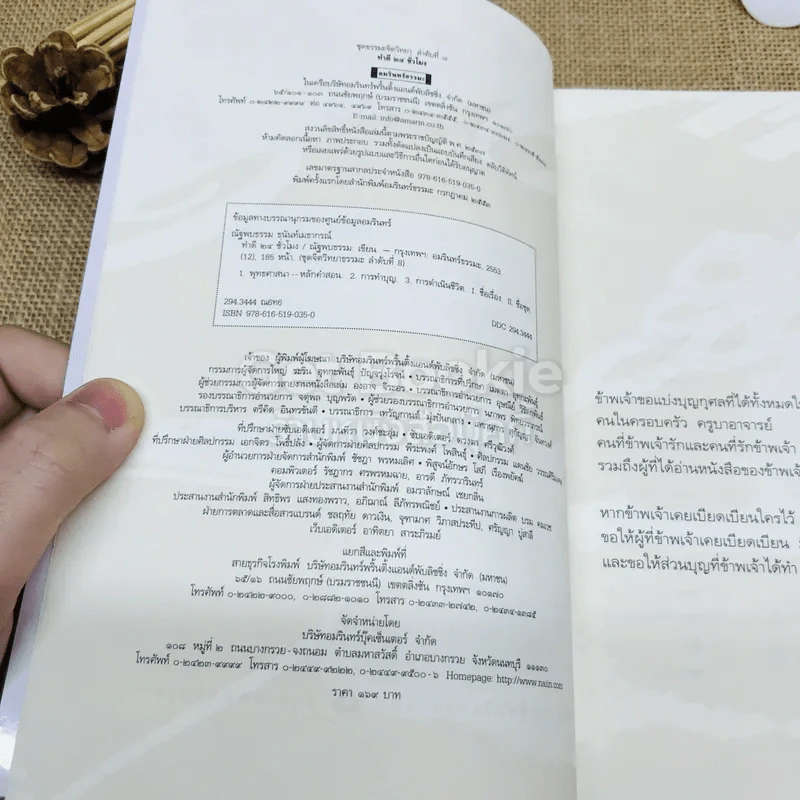 ชุดธรรมะจิตวิทยา ลำดับที่ ๘
ทำดี ๒๔ ชั่วโมง
อมรินทร์ธรรมะ
ในเครือบริษัทอมรินทร์พริ้นติ้งแอนด์พับลิชชิ่ง จำกัด (มหาชน)
๖๕/๑๐๑-๑๐๓ ถนนชัยพฤกษ์ (บรมราชชนนี) เขตตลิ่งชัน กรุงเทพฯ ๑๐๑๗๐
โทรศัพท์ ๐-๒๔๒๒-๙๙๙๙ ต่อ ๔๙๖๔, ๔๙๖๙ โทรสาร
E-mail: info@amarin.co.th
สงวนลิขสิทธิ์หนังสือเล่มนี้ตามพระราชบัญญัติ พ.ศ. ๒๕๓๗
ห้ามคัดลอกเนื้อหา ภาพประกอบ รวมทั้งดัดแปลงเป็นแถบบันทึกเสียง
หรือเผยแพร่ด้วยรูปแบบและวิธีการอื่นใดก่อนได้รับอนุญาต
เลขมาตรฐานสากลประจำหนังสือ 978-616-519-035-0
พิมพ์ครั้งแรกโดยสำนักพิมพ์อมรินทร์ธรรมะ กรกฎาคม ๒๕๕๓
ข้อมูลทางบรรณานุกรมของศูนย์ข้อมูลอมรินทร์
ณัฐพบธรรม ธุนันท์เมธากรณ์.
ทำดี ๒๔ ชั่วโมง / ณัฐพบธรรม: เขียน. — กรุงเทพฯ: อมรินทร์ธรรมะ, 2553.
(12), 185 หน้า. (ชุดจิตวิทยาธรรมะ ลำดับที่ 8)
1. พุทธศาสนา--หลักคำสอน. 2. การทำบุญ. 3. การดำเนินชีวิต. I. ชื่อเรื่อง. II. ชื่อชุด.
294.3444 ณ6ท6
DDC 294.3444
ISBN 978-616-519-035-0
เจ้าของ ผู้พิมพ์ผู้โฆษณา บริษัทอมรินทร์พริ้นติ้งแอนด์พับลิชชิ่ง จำกัด (มหาชน)
กรรมการผู้จัดการใหญ่ ระริน อุทกะพันธุ์ ปัญจรุ่งโรจน์ • บรรณาธิการที่ปรึกษา เมตตา อุทกะพันธุ์
ผู้ช่วยกรรมการผู้จัดการสายงานหนังสือเล่ม องอาจ จิระอร • บรรณาธิการอำนวยการ
รองบรรณาธิการอำนวยการ จตุพล บุญพรัด • ผู้ช่วยรองบรรณาธิการอำนวยการ
บรรณาธิการบริหาร ตรีคิด อินทรขันตี • บรรณาธิการ
ที่ปรึกษาฝ่ายศิลปกรรม เอกจิตร โพธิ์ปลั่ง • ผู้จัดการฝ่ายศิลปกรรม พีระพงศ์ โพสินธุ์ • ศิลปกรรม
ผู้อำนวยการฝ่ายจัดการสำนักพิมพ์ ชัชฎา พรหมเลิศ • พิสูจน์อักษร โสภี เรืองพยัคฆ์
คอมพิวเตอร์ รัชฎากร ศรพรหมฉาย, อารดี ภัทรวารินทร์
ผู้จัดการฝ่ายประสานงานสำนักพิมพ์ อมราลักษณ์ เชยกลิ่น
ประสานงานสำนักพิมพ์ สิทธิพร แสงทองพราว, อภิฌาณ์ ลีภัทรพณิชย์ • ประสานงานการผลิต
ฝ่ายการตลาดและสื่อสารแบรนด์ ชลฤทัย ดาวเงิน, จุฑามาศ วิภาสประทีป, ศรัญญา
เว็บเอดิเตอร์ อาทิตยา สาระภิรมย์
แยกสีและพิมพ์ที่
สายธุรกิจโรงพิมพ์ บริษัทอมรินทร์พริ้นติ้งแอนด์พับลิชชิ่ง จำกัด (มหาชน)
๖๕/๑๖ ถนนชัยพฤกษ์ (บรมราชชนนี) เขตตลิ่งชัน กรุงเทพฯ ๑๐๑๗๐
โทรศัพท์ ๐-๒๔๒๒-๙๐๐๐, ๐-๒๘๘๒-๑๐๑๐ โทรสาร ๐-๒๔๓๓-๒๗๔๒, ๐-๒๔๓๔-๑๓๘๕
จัดจำหน่ายโดย
บริษัทอมรินทร์บุ๊คเซ็นเตอร์ จำกัด
๑๐๘ หมู่ที่ ๒ ถนนบางกรวย-จงถนอม ตำบลมหาสวัสดิ์ อำเภอบางกรวย จังหวัดนนทบุรี ๑๑๑๓๐
โทรศัพท์ ๐-๒๔๒๓-๙๙๙๙ โทรสาร ๐-๒๔๔๙-๙๒๒๒, ๐-๒๔๔๙-๙๕๐๐-๖ Homepage: http://www.naiin.com
ราคา ๑๖๙ บาท
ข้าพเจ้าขอแบ่งบุญกุศลที่ได้ทั้งหมด
คนในครอบครัว ครูบาอาจารย์
คนที่ข้าพเจ้ารักและคนที่รักข้าพเจ้า
รวมถึงผู้ที่ได้อ่านหนังสือของข้าพเจ้า
หากข้าพเจ้าเคยเบียดเบียนใครไว้
ขอให้ผู้ที่ข้าพเจ้าเคยเบียดเบียน
และขอให้ส่วนบุญที่ข้าพเจ้าได้ทำ